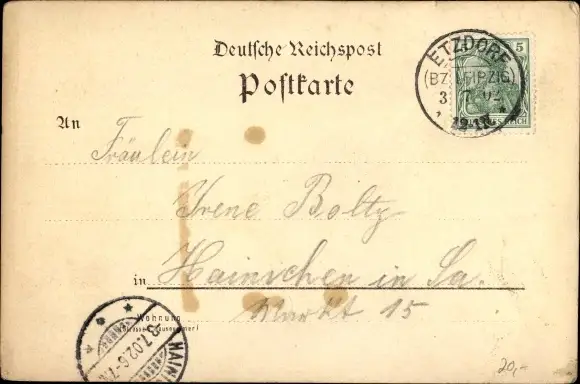 Deutsche Reichspost
Postkarte
ETZDORF
(BZ. LEIPZIG)
3 7 02
5
An
Fräulein
Irene Boltz
in Hainichen in Sa.
Markt 15
Wohnung
(Straße und Hausnummer)
3.7.02.6-7
20,-